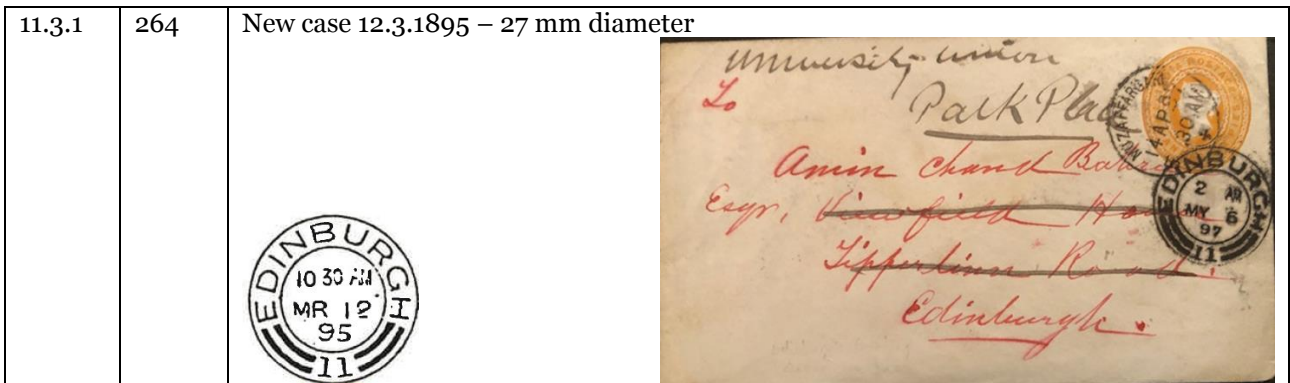 11.3.1 264 New case 12.3.1895 – 27 mm diameter
EDINBURGH
10 30 AM
MR 12
95
11
University Union
To Park Place
Amin Chand
Esqr, Viewfield
Tipperlinn Road.
Edinburgh.
MUZAFFARGA
14 AP
30 AM
EDINBURGH
2 AM
MY 6
97
11